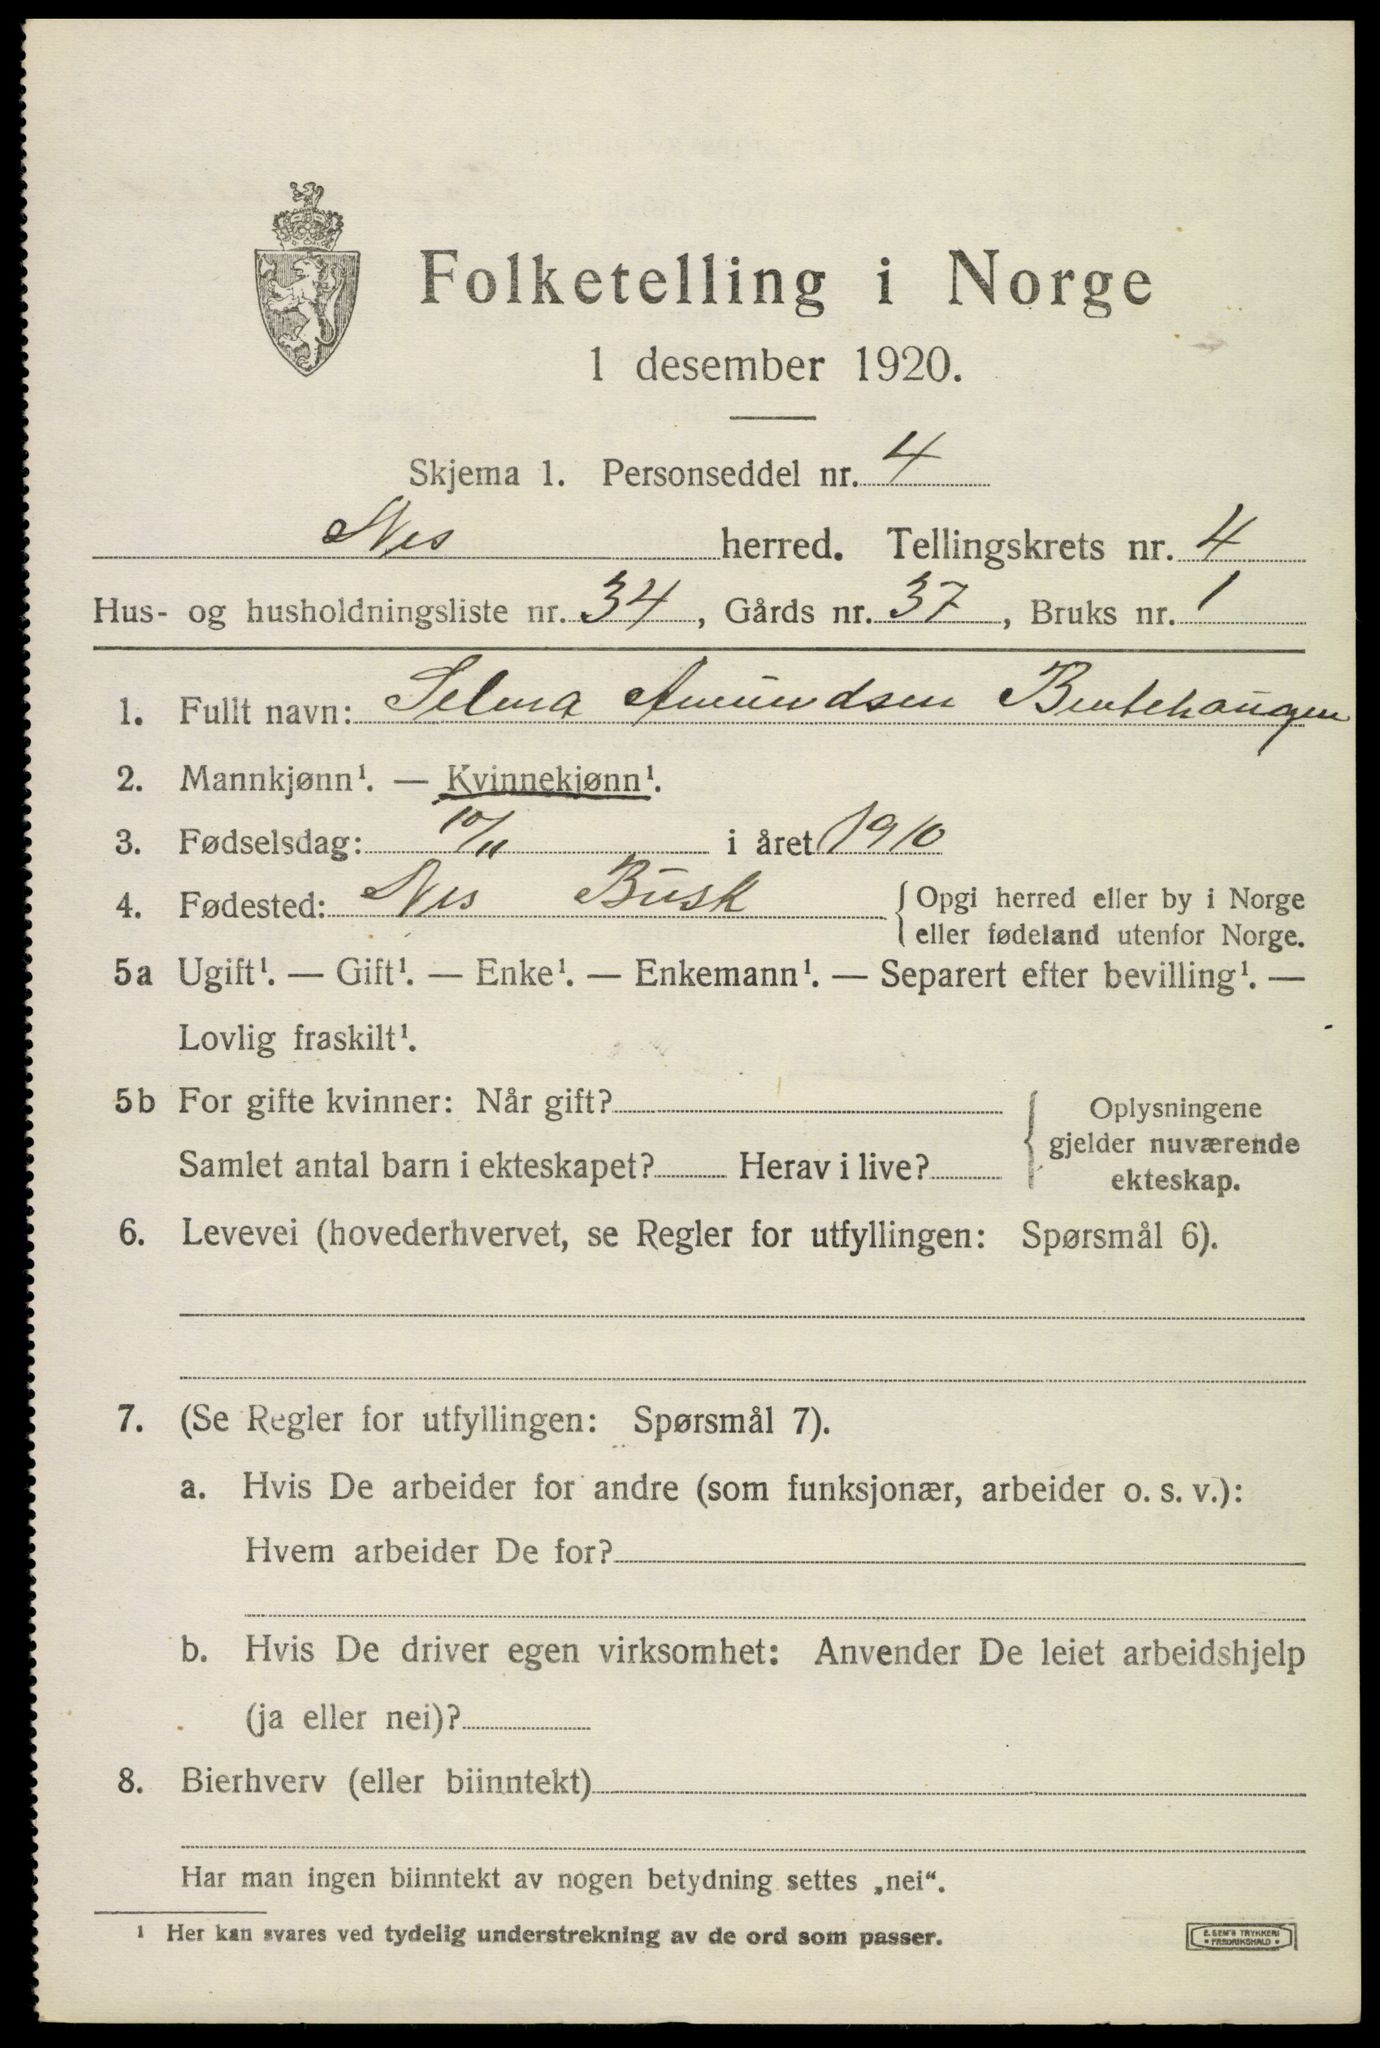 Folketelling i Norge
1 desember 1920.
Skjema 1. Personseddel nr. 4
Nes herred. Tellingskrets nr. 4
Hus- og husholdningsliste nr. 34, Gårds nr. 37, Bruks nr. 1
1. Fullt navn: Selma Amundsen Bentehaugen
2. Mannkjønn¹. — Kvinnekjønn¹.
3. Fødselsdag: 10/11 i året 1910
4. Fødested: Nes Busk { Opgi herred eller by i Norge
eller fødeland utenfor Norge.
5a Ugift¹. — Gift¹. — Enke¹. — Enkemann¹. — Separert efter bevilling¹. —
Lovlig fraskilt¹.
5b For gifte kvinner: Når gift? { Oplysningene
gjelder nuværende
Samlet antal barn i ekteskapet? Herav i live?
ekteskap.
6. Levevei (hovederhvervet, se Regler for utfyllingen: Spørsmål 6).
7. (Se Regler for utfyllingen: Spørsmål 7).
a. Hvis De arbeider for andre (som funksjonær, arbeider o. s. v.):
Hvem arbeider De for?
b. Hvis De driver egen virksomhet: Anvender De leiet arbeidshjelp
(ja eller nei)?
8. Bierhverv (eller biinntekt)
Har man ingen biinntekt av nogen betydning settes „nei“.
¹ Her kan svares ved tydelig understrekning av de ord som passer.
E. SEM'S TRYKKERI
• FREDRIKSHALD •